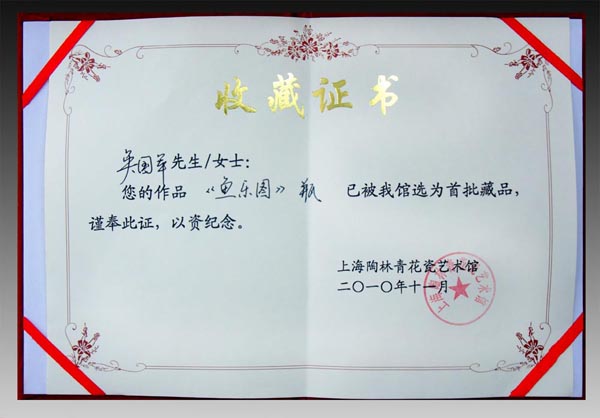 收藏证书
吴国军先生/女士：
您的作品《鱼乐图》瓶 已被我馆选为首批藏品，
谨奉此证，以资纪念。
上海陶林青花瓷艺术馆
二〇一〇年十一月